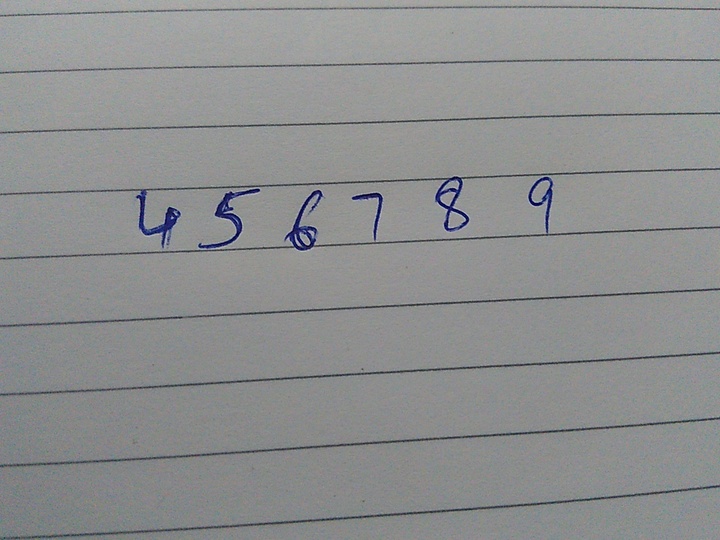 4 5 6 7 8 9